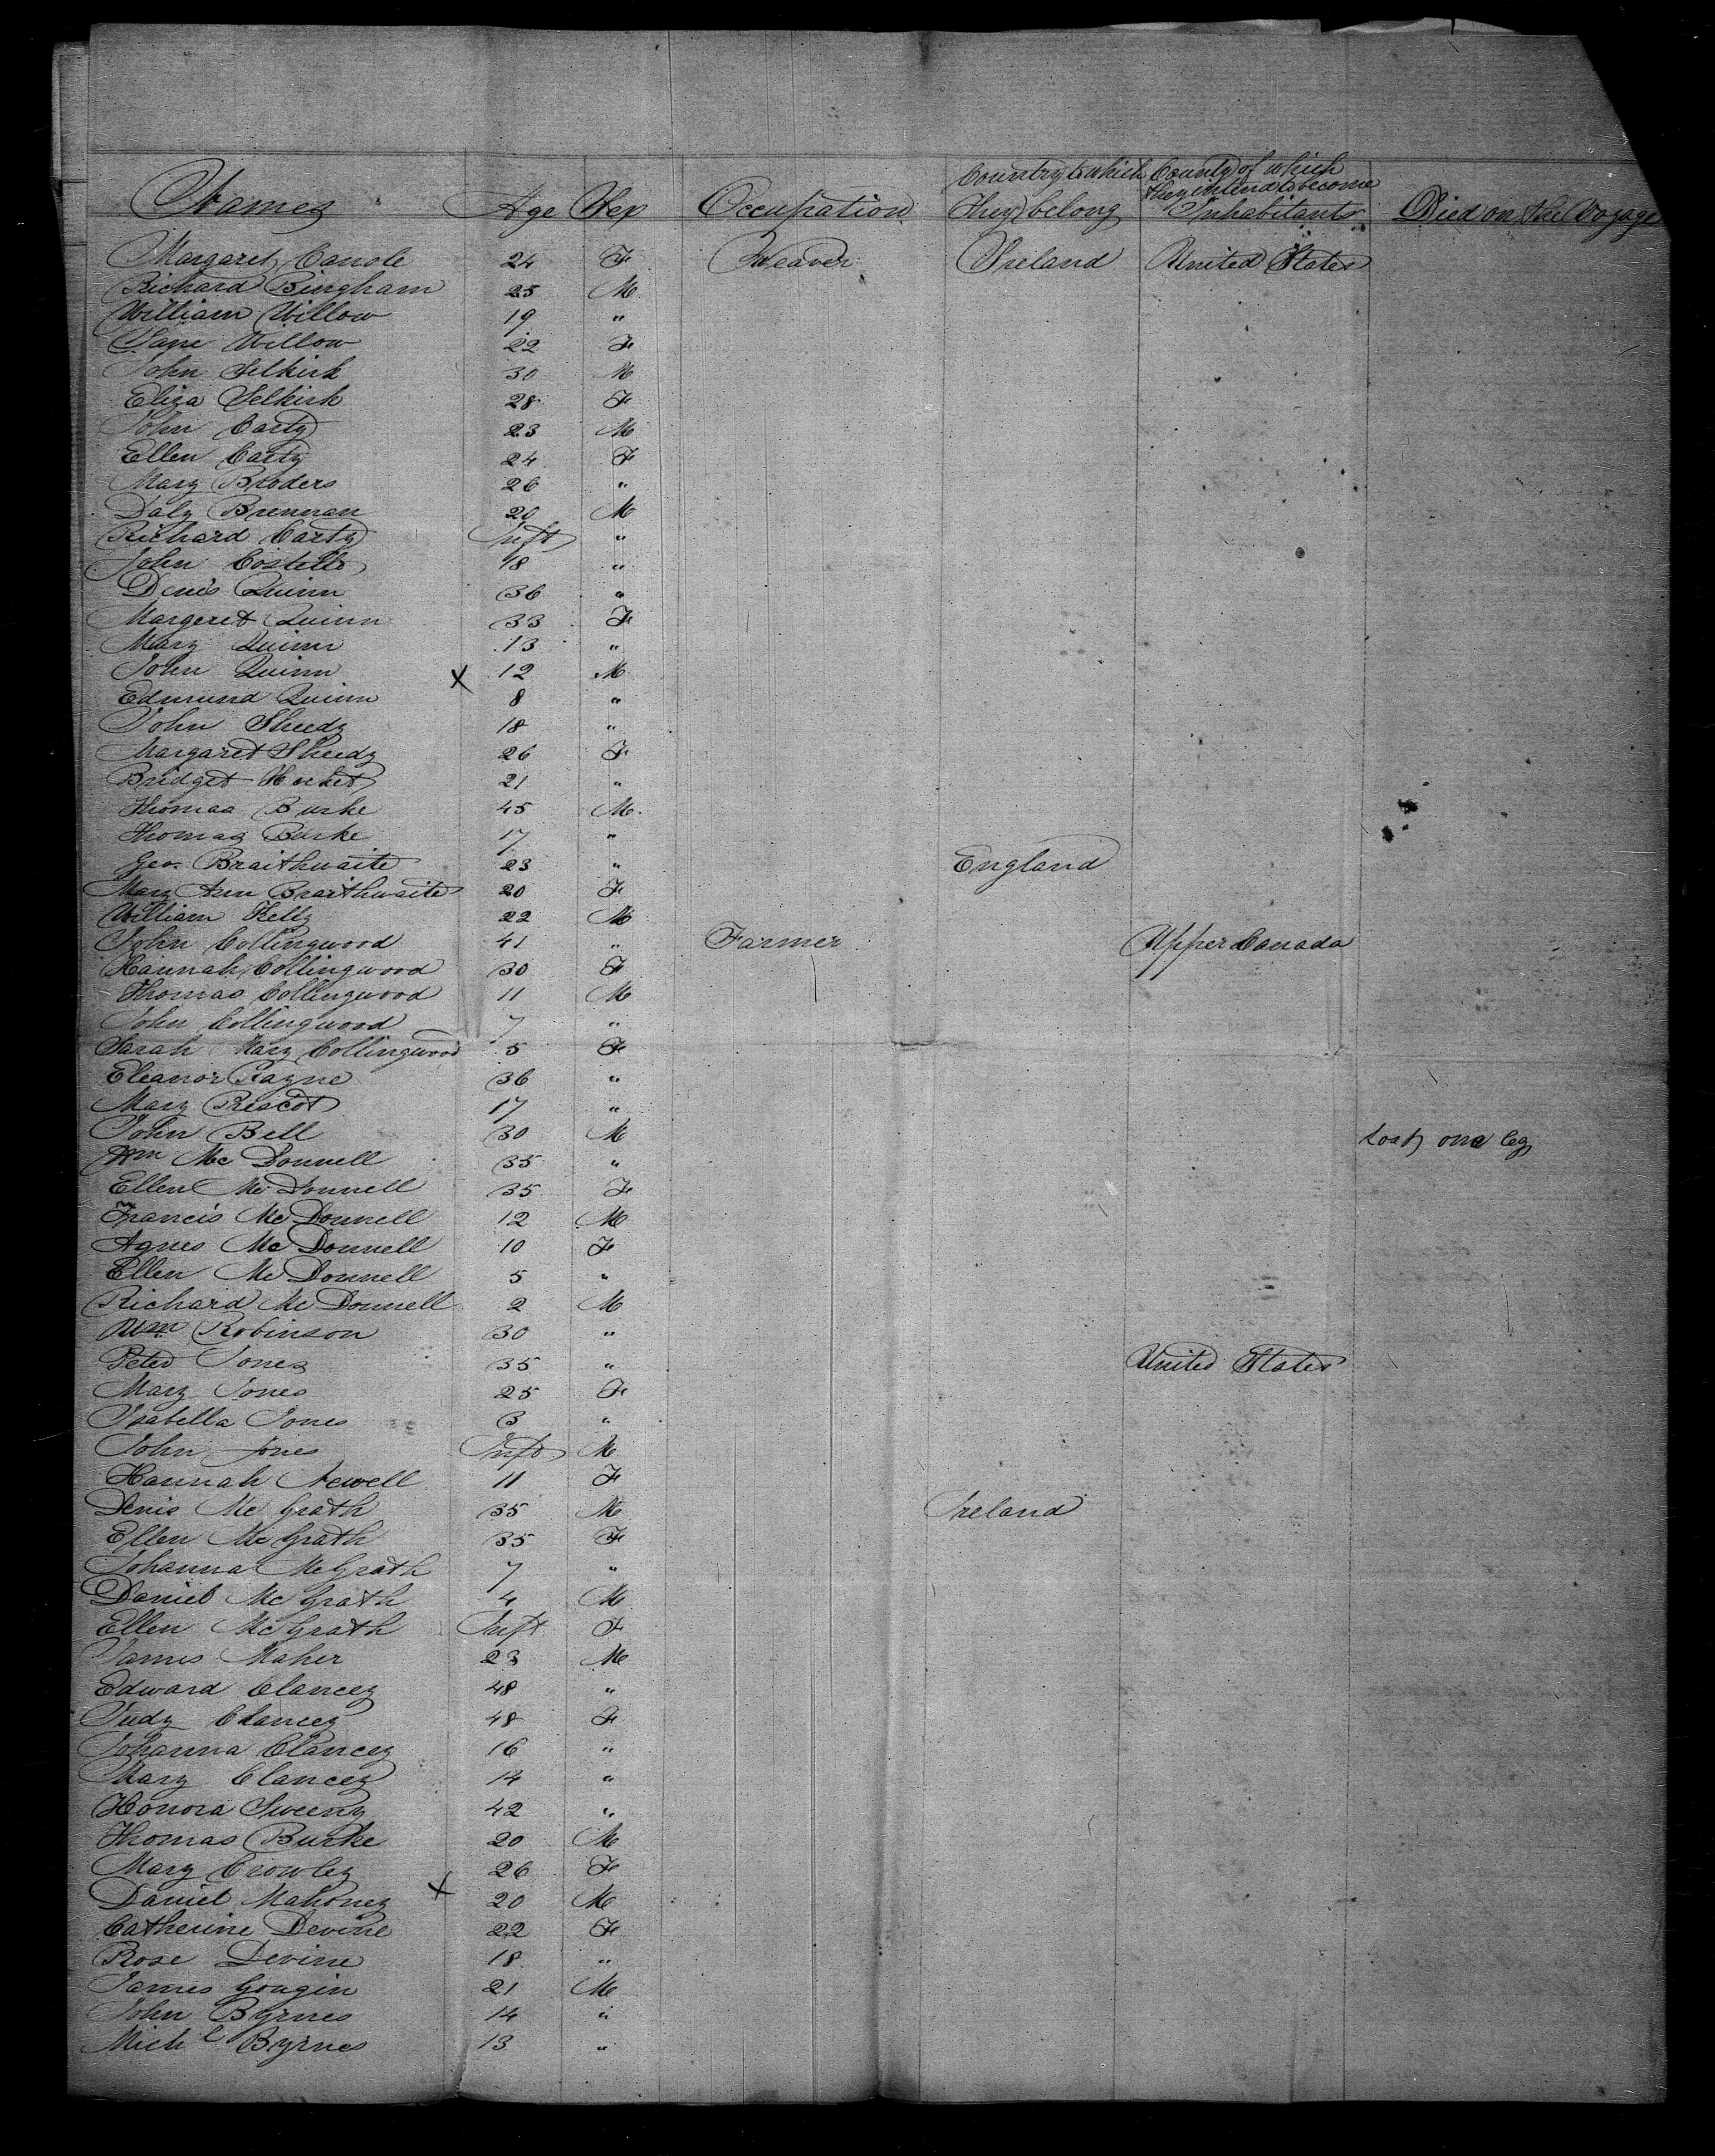 Names Age Sex Occupation Country to which They belong County of which they intend to become Inhabitants Died on the Voyage
Margaret Canole 24 F Weaver Ireland United States
Richard Bingham 25 M
William Willow 19 "
Jane Willow 22 F
John Selkirk 30 M
Eliza Selkirk 28 F
John Carty 23 M
Ellen Carty 24 F
Mary Broders 26 "
Daly Brennan 20 M
Richard Carty Inft "
John Costello 18 "
Denis Quinn 36 "
Margeret Quinn 33 F
Mary Quinn 13 "
John Quinn X 12 M
Edmund Quinn 8 "
John Sheedy 18 "
Margaret Sheedy 26 F
Bridget 21 "
Thomas Burke 45 M
Thomas Burke 17 "
Geo. Braithwaite 23 " England
Mary Ann Braithwaite 20 F
William Kelly 22 M
John Collingwood 41 " Farmer Upper Canada
Hannah Collingwood 30 F
Thomas Collingwood 11 M
John Collingwood 7 "
Sarah Mary Collingwood 5 F
Eleanor 36 "
Mary Prescot 17 "
John Bell 30 M Lost one leg
Wm Mc Donnell 35 "
Ellen Mc Donnell 35 F
Francis Mc Donnell 12 M
Agnes Mc Donnell 10 F
Ellen Mc Donnell 5 "
Richard Mc Donnell 2 M
Wm Robinson 30 "
Peter Jones 35 " United States
Mary Jones 25 F
Isabella Jones 3 "
John Jones Inft M
Hannah Newell 11 F
Denis Mc Grath 35 M Ireland
Ellen Mc Grath 35 F
Johanna McGrath 7 "
Daniel Mc Grath 4 M
Ellen McGrath Inft F
James Maher 23 M
Edward Clancey 48 "
Judy Clancey 48 F
Johanna Clancey 16 "
Mary Clancey 14 "
Honora Sweeny 42 "
Thomas Burke 20 M
Mary Crowley 26 F
Daniel Mahoney X 20 M
Catherine Devine 22 F
Rose Devine 18 "
James Gougin 21 M
John Byrnes 14 "
Michl Byrnes 13 "